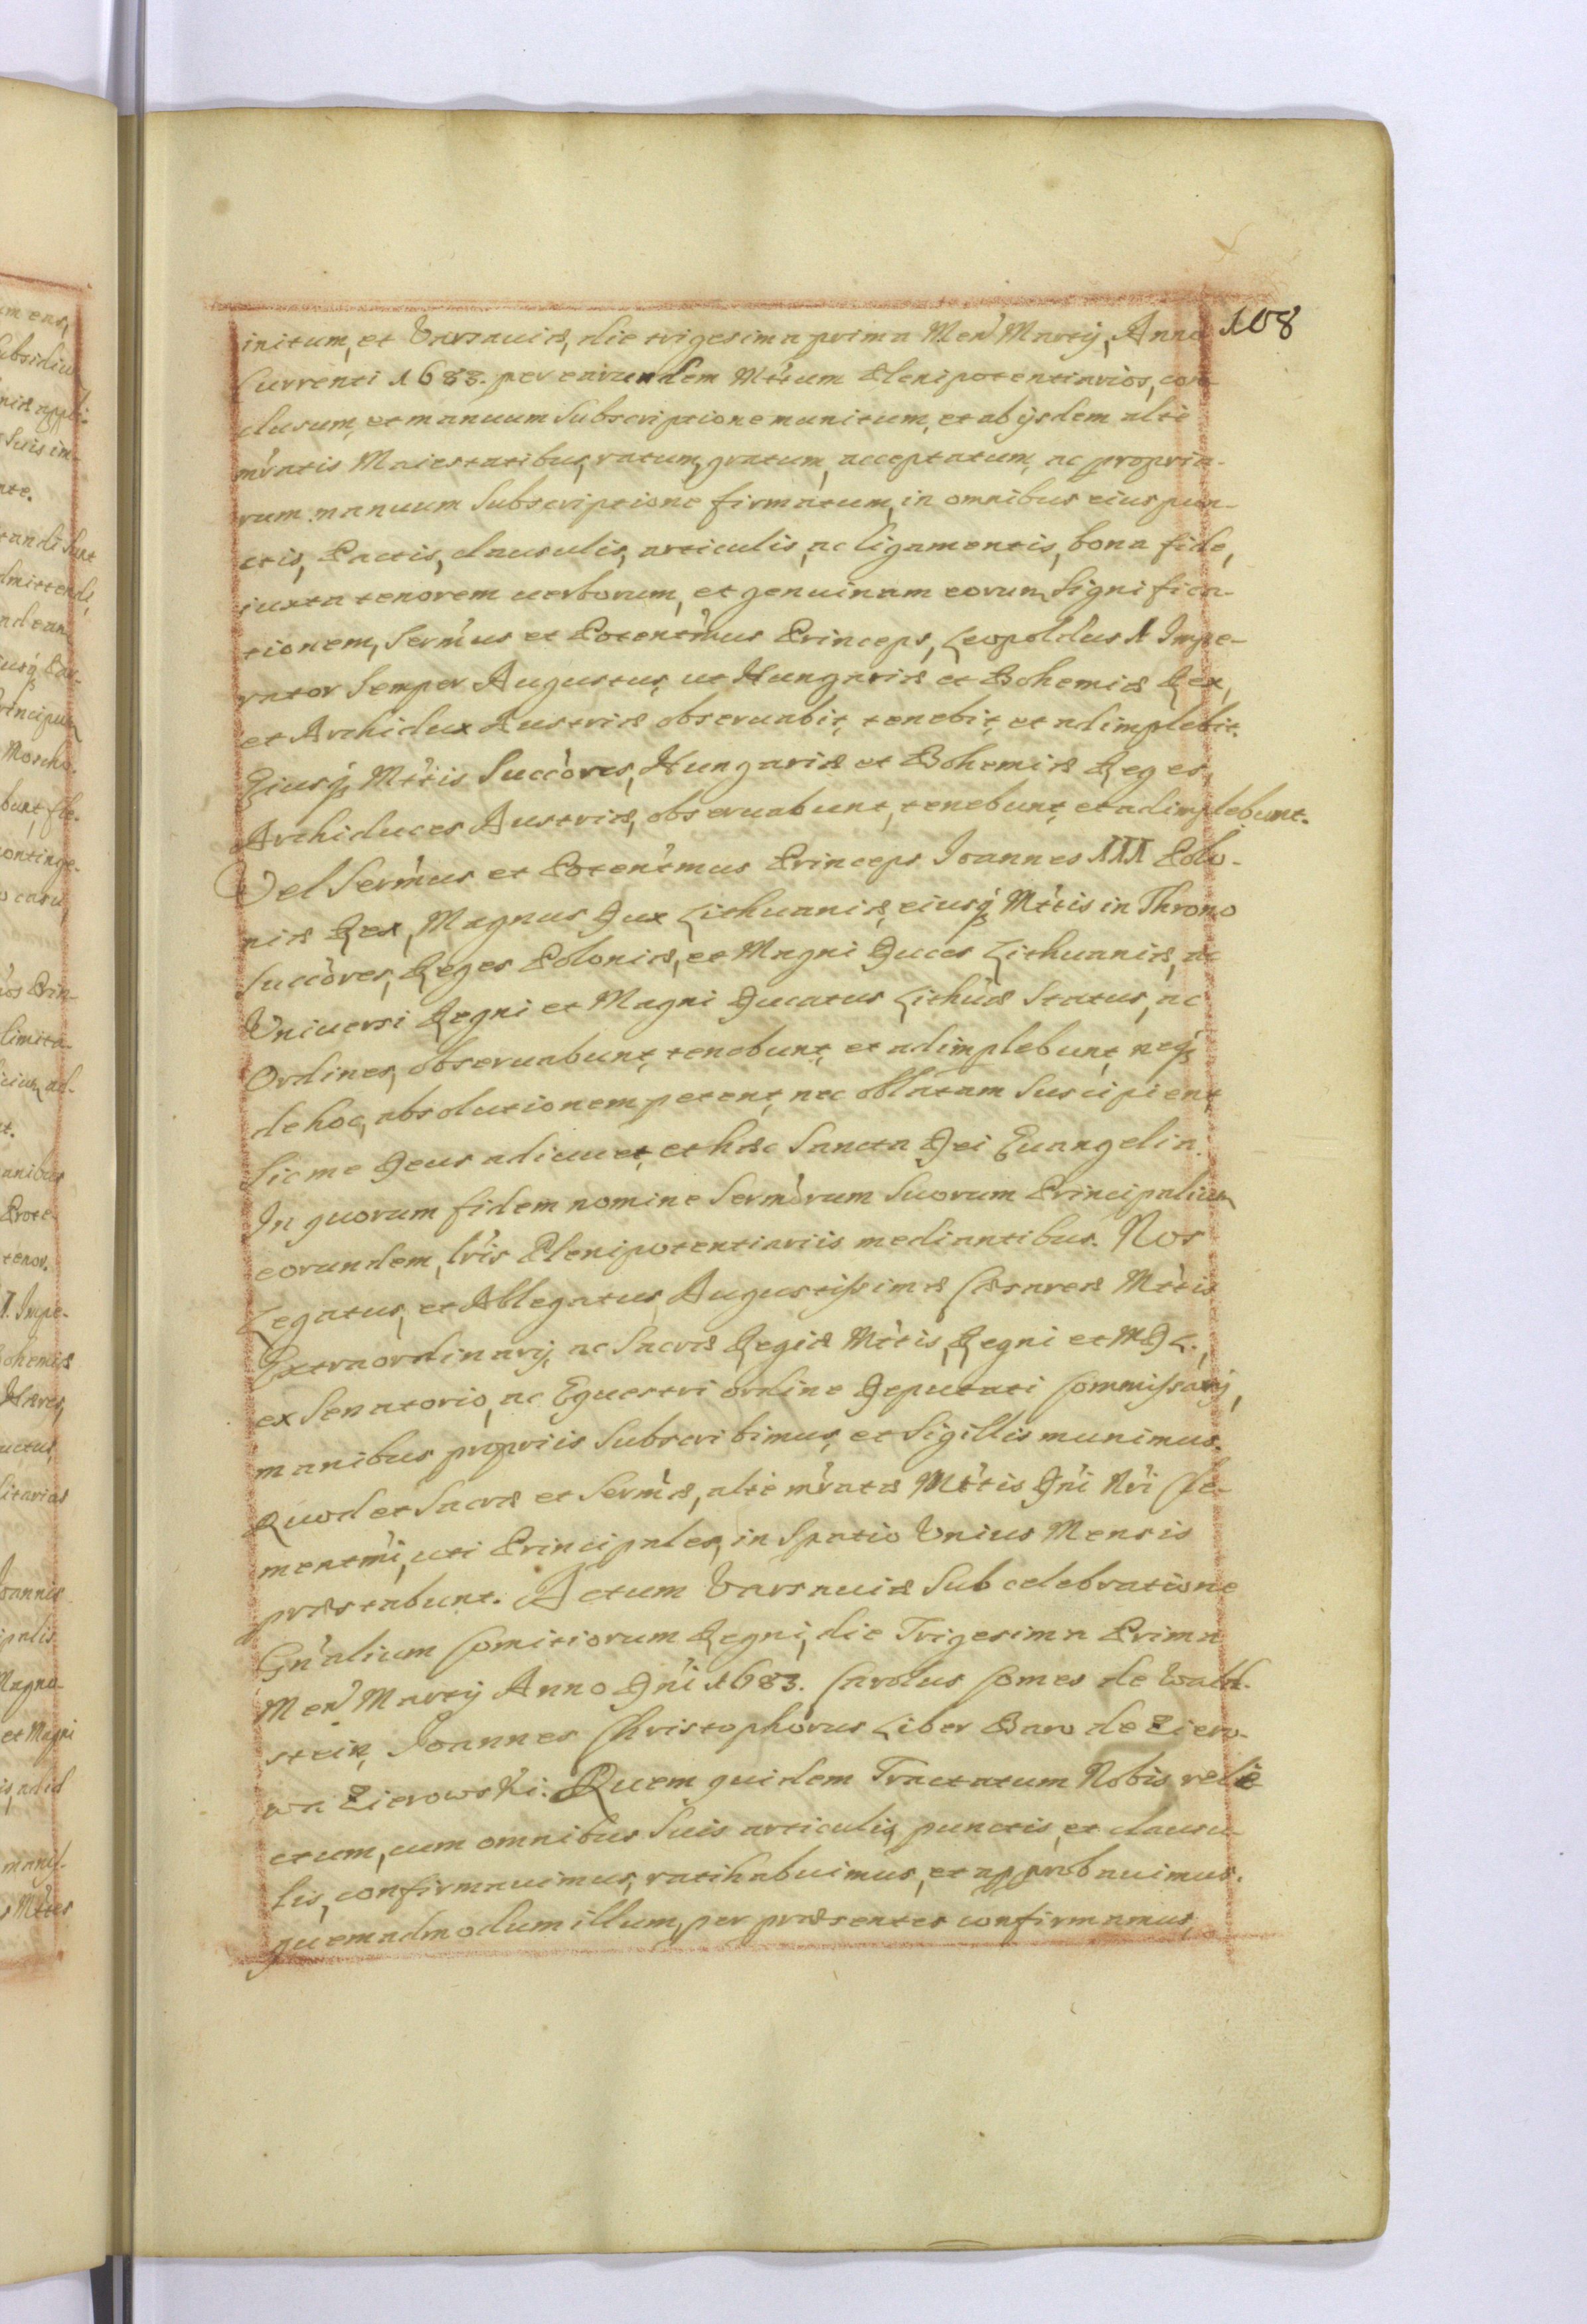 108
initum, et Varsauiæ, die trigesima prima Men̄ Martij, Anno
Currenti 1683. per earundem Mttum Plenipotentiarios, con-
clusum, et manuum Subscriptione munitum, et ab ijsdem alte
mrātis Maiestatibus, ratum, gratum, acceptatum, ac propria-
rum manuum Subscriptione firmatum, in omnibus eius pun-
ctis, Pactis, clausulis, articulis, ac ligamentis, bona fide,
iuxta tenorem uerborum, et genuinam eorum Significa-
tionem, Sermus et Potentmus Princeps, Leopoldus I Impe-
rator Semper Augustus, ut Hungariæ et Bohemiæ Rex,
et Archidux Austriæ obseruabit, tenebit, et adimplebit.
Eiusq́ Mttis Succōres, Hungariæ et Bohemiæ Reges,
Archiduces Austriæ, obseruabunt, tenebunt, et adimplebunt.
Vel Sermus et Potentmus Princeps Ioannes III Polo-
niæ Rex, Magnus Dux Lithuaniæ, eiusq́ Mttis in Throno
Succōres, Reges Poloniæ, et Magni Duces Lithuaniæ, ac
Vniuersi Regni et Magni Ducatus Lithūæ Status, ac
Ordines, obseruabunt, tenebunt, et adimplebunt, neq́
de hoc, absolutionem petent, nec oblatam Suscipient,
Sic me Deus adiuuet, et hæc Sancta Dei Euangelia.
In quorum fidem nomine Sermōrum Suorum Principalium
eorundem, lrīs Plenipotentiariis mediantibus. Nos
Legatus, et Ablegatus Augustissimæ Cæsareæ Mttis
Extraordinarij, ac Sacræ Regiæ Mttis, Regni et M D L.,
ex Senatorio, ac Equestri ordine Deputati Commissarij,
manibus propriis Subscribimus, et Sigillis munimus.
Quod et Sacræ et Sermæ, alte mrātæ Mttis Dnī Nrī Cle-
mentmi, uti Principales, in Spatio Vnius Mensis
præstabunt. Actum Varsauiæ Sub celebratione
Gnālium Comitiorum Regni, die Trigesima Prima
Men̄ Martij Anno Dnī 1683. Carolus Comes de Wald-
stein, Ioannes Christophorus Liber Baro de Ziero-
wa Zierowski. Quem quidem Tractatum Nobis rele-
ctum, cum omnibus Suis articulis, punctis, et clausu-
lis, confirmauimus, ratihabuimus, et approbauimus.
quemadmodum illum, per præsentes confirmamus,